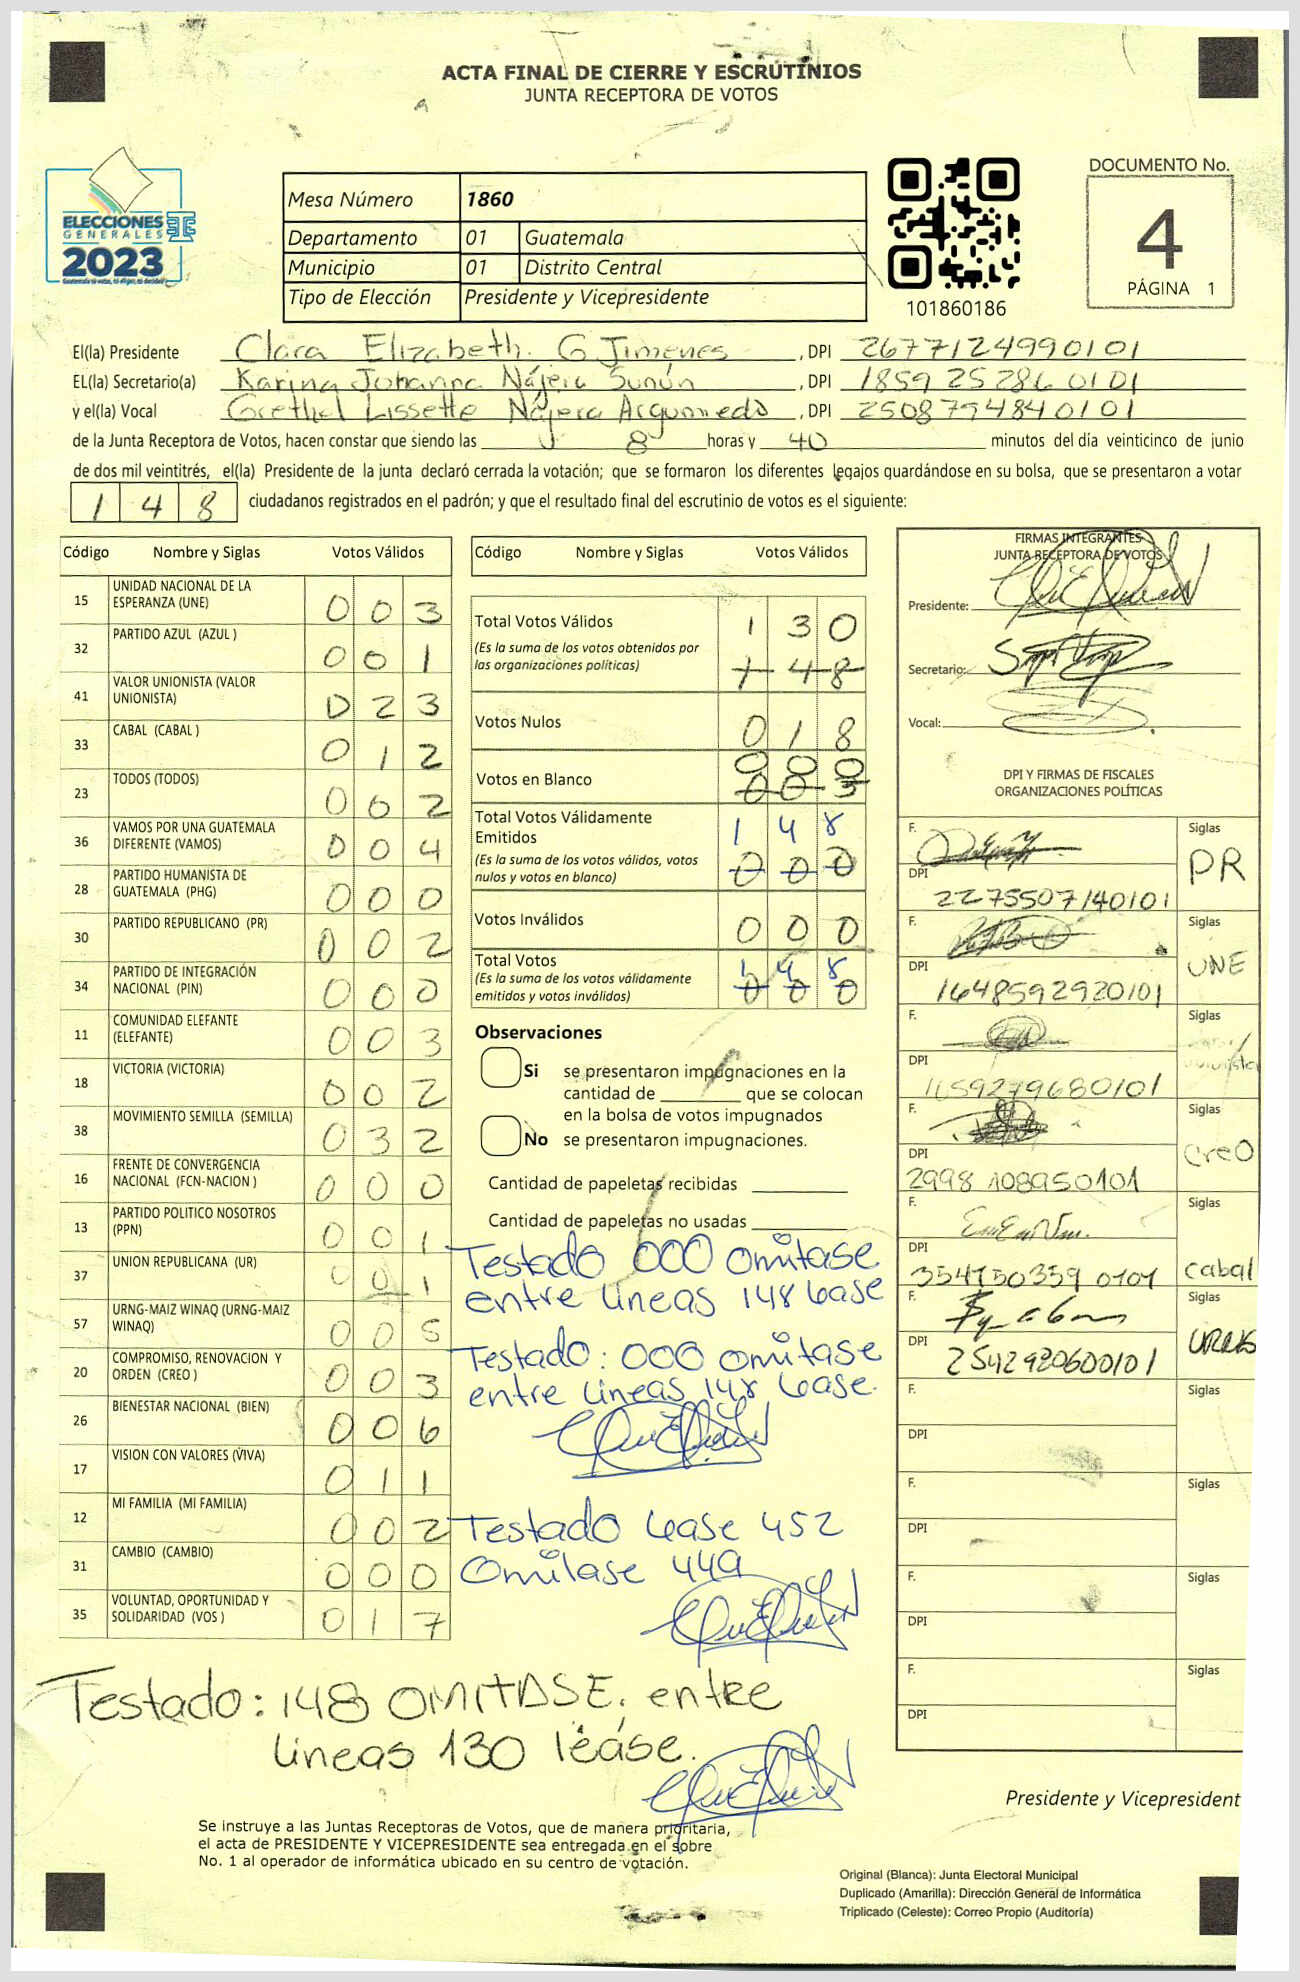 ACTA FINAL DE CIERRE Y ESCRUTINIOS
JUNTA RECEPTORA DE VOTOS
ELECCIONES
GENERALES
2023
Mesa Número 1860
Departamento 01 Guatemala
Municipio 01 Distrito Central
Tipo de Elección Presidente y Vicepresidente
101860186
DOCUMENTO No.
4
PÁGINA 1
El(la) Presidente Clara Elizabeth G Jimenes, DPI 2677124990101
EL(la) Secretario(a) Karina Johanna Nájera Sunún, DPI 1859252860101
y el(la) Vocal Grethel Lissette Nájera Argumedo, DPI 2508794840101
de la Junta Receptora de Votos, hacen constar que siendo las 8 horas y 40 minutos del día veinticinco de junio
de dos mil veintitrés, el(la) Presidente de la junta declaró cerrada la votación; que se formaron los diferentes legajos guardándose en su bolsa, que se presentaron a votar
148 ciudadanos registrados en el padrón; y que el resultado final del escrutinio de votos es el siguiente:
Código Nombre y Siglas Votos Válidos
15 UNIDAD NACIONAL DE LA ESPERANZA (UNE) 003
32 PARTIDO AZUL (AZUL ) 001
41 VALOR UNIONISTA (VALOR UNIONISTA) 023
33 CABAL (CABAL ) 012
23 TODOS (TODOS) 002
36 VAMOS POR UNA GUATEMALA DIFERENTE (VAMOS) 004
28 PARTIDO HUMANISTA DE GUATEMALA (PHG) 000
30 PARTIDO REPUBLICANO (PR) 002
34 PARTIDO DE INTEGRACIÓN NACIONAL (PIN) 000
11 COMUNIDAD ELEFANTE (ELEFANTE) 003
18 VICTORIA (VICTORIA) 002
38 MOVIMIENTO SEMILLA (SEMILLA) 032
16 FRENTE DE CONVERGENCIA NACIONAL (FCN-NACION ) 000
13 PARTIDO POLITICO NOSOTROS (PPN) 001
37 UNION REPUBLICANA (UR) 001
57 URNG-MAIZ WINAQ (URNG-MAIZ WINAQ) 005
20 COMPROMISO, RENOVACION Y ORDEN (CREO ) 003
26 BIENESTAR NACIONAL (BIEN) 006
17 VISION CON VALORES (VIVA) 011
12 MI FAMILIA (MI FAMILIA) 002
31 CAMBIO (CAMBIO) 000
35 VOLUNTAD, OPORTUNIDAD Y SOLIDARIDAD (VOS ) 017
Código Nombre y Siglas Votos Válidos
Total Votos Válidos 130
(Es la suma de los votos obtenidos por las organizaciones políticas) 148
Votos Nulos 018
000
Votos en Blanco 003
Total Votos Válidamente Emitidos 148
(Es la suma de los votos válidos, votos nulos y votos en blanco) 000
Votos Inválidos 000
Total Votos 148
(Es la suma de los votos válidamente emitidos y votos inválidos) 000
Observaciones
Si se presentaron impugnaciones en la
cantidad de ________ que se colocan
en la bolsa de votos impugnados
No se presentaron impugnaciones.
Cantidad de papeletas recibidas
Cantidad de papeletas no usadas
Testado 000 omitase
entre lineas 148 lease
Testado: 000 omitase
entre lineas 148 lease.
Testado lease 452
Omitase 449
Testado: 148 OMITASE. entre
lineas 130 léase.
FIRMAS INTEGRANTES
JUNTA RECEPTORA DE VOTOS
Presidente:
Secretario:
Vocal:
DPI Y FIRMAS DE FISCALES
ORGANIZACIONES POLÍTICAS
F. Siglas PR
DPI 2275507140101
F. Siglas UNE
DPI 1648592920101
F. Siglas
DPI 1159279680101
F. Siglas CreO
DPI 2998108950101
F. Siglas Cabal
DPI 3541503590101
F. Siglas URNG
DPI 2542920600101
F. Siglas
DPI
F. Siglas
DPI
F. Siglas
DPI
F. Siglas
DPI
Presidente y Vicepresident
Se instruye a las Juntas Receptoras de Votos, que de manera prioritaria,
el acta de PRESIDENTE Y VICEPRESIDENTE sea entregada en el sobre
No. 1 al operador de informática ubicado en su centro de votación.
Original (Blanca): Junta Electoral Municipal
Duplicado (Amarilla): Dirección General de Informática
Triplicado (Celeste): Correo Propio (Auditoría)